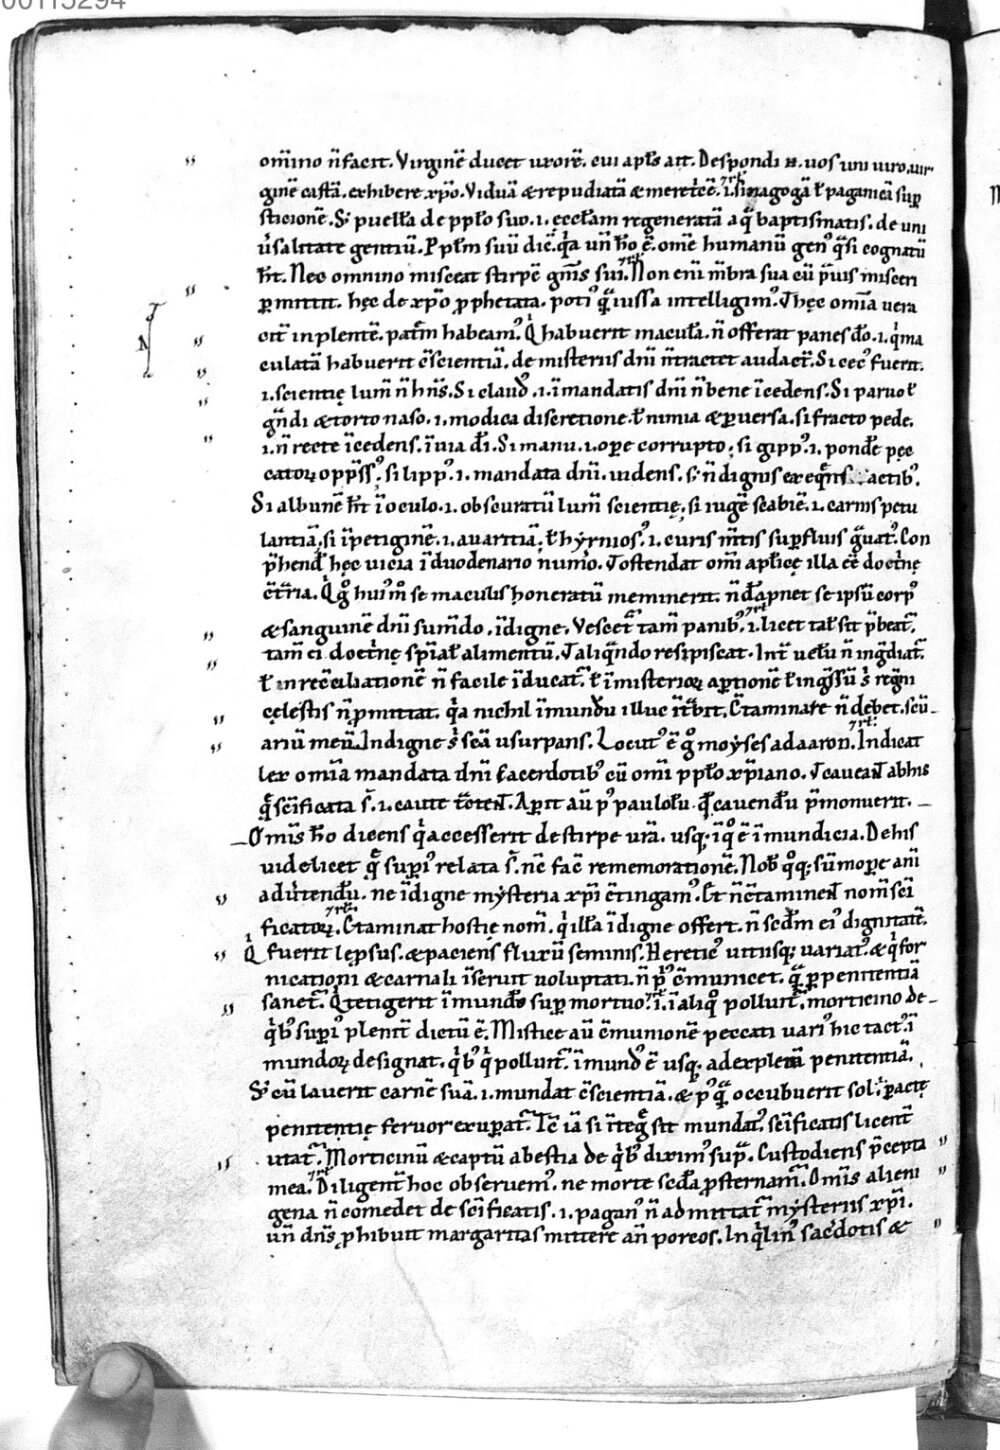 00115294
om̄ino n̄ facit. Virginē ducet uxorē. cui apl̄s ait. Despondi .n. uos uni uiro. uir
ginē castā. exhibere xp̄o. Viduā & repudiatā & meretcē .i. sinagogā ł paganicā sup̄
sticionē. S; puellā de pp̄lo suo .i. ęccl̄am regeneratā aq̄ baptismatis. de uni
uersalitate gentiū. Pp̄lm suū dic̄. q̄a un̄ h̄o ē. om̄e humanū gen⁹ q̄si cognatū
h̄t. Nec omnino misceat stirpē gn̄is sui. Non eni m̄bra sua cū p̄uis misceri
p̱mittit. hęc de xp̄o p̱phetata. poti⁹ q̄ iussa intelligim⁹. Jhęc omīa uera
cit̄ inplentē. patr̄m habeam⁹. Q̇ habuerit maculā. n̄ offerat panes dō .i. q̇ ma
culatā habuerit c̄scientiā. de misteriis dn̄i n̄ tractet audact̄. Si cec⁹ fuerit.
.i. scientię lum̄ n̄ hn̄s. Si claud⁹ .i. ī mandatis dn̄i n̄ bene īcedens. Si paruo ł
gn̄di & torto naso .i. modica discretione. ł nimia & p̱uersa. si fracto pede.
.i. n̄ recte īcedens. ī uia dī. Si manu .i. op̱e corrupto; si gipp⁹ .i. pond̄e pec
catoꝝ opp̄ss⁹. si lipp⁹ .i. mandata dn̄i. uidens. s; n̄ dignis exeq̄ns actib⁹.
Si albuginē h̄t ī oculo .i. obscuratū lum̄ scientię; si iugē scabiē .i. carnis petu
lantiā; si īpetiginē .i. auaritiā; ł hyrnios⁹ .i. curis m̄tis sup̱fluis g̈uat⁹. Con
p̄hend̄ hęc uicia ī duodenario num̄o. Jostendat om̄i aplicę illa ēē doct̄nę
c̄tria. Q̇ g⁰ hui⁹m̊ se maculis honeratū meminerit. n̄ d̄ apnet se ipsū corp⁹
& sanguinē dn̄i sum̄do .īdigne. Vescet̄ tam̄ panib⁹ .i. licet tał sit p̄beat̄.
tam̄ ei doct̄nę sp̄iał alimentū. Jaliq̄ndo resipiscat. Int̄ uelū n̄ ingdiat̄.
ł in reconciliationē n̄ facile īducat̄. ł ī misterioꝝ ap̱tionē ł ingssū s̄ regni
cęlestis n̄ p̱mittat. q̄a nichil īmundū illuc īt̄bit. C̄taminare n̄ debet. scū
ariū meū. Indigne s̄ scā usurpans. Locut⁹ ē g⁰ moyses ad aaron. Indicat
lex omīa mandata dn̄i sacerdotib⁹ cū om̄i pp̄lo xp̄iano. J caueant ab his
q̄ sc̄ificata s̄ .i. caute tractent. Ap̱it aū p⁹ paululū q̄d cauendū p̄monuerit.
Omīs h̄o dicens q̄ accesserit de stirpe ur̄a. usq; īq⁰ ē īmundicia. De his
uidelicet q̄ sup̱i⁹ relata s̄. nc̄ fac̄ rememorationē. Nob̄ q⁰q; sūmop̱e ani
aduertendū. ne īdigne mysteria xp̄i c̄tingam⁹. Et n̄ c̄taminent nom̄ sc̄i
ficatoꝝ. C̄taminat hostię nom̄. q̇ illā īdigne offert. n̄ scd̄m ei⁹ dignitatē.
Q̇ fuerit lępsus. & paciens fluxū seminis. Heretic⁹ uitiisq; uariat⁹. & q̇ for
nicationi & carnali īseruit uoluptati. n̄ p⁹ c̄municet. q̄ p̱ penitentiā
sanet̄. Q̇ tetigerit īmundū sup̱ mortuo .i. īaliq⁰ polluit̄. morticino de
q̇b⁹ sup̱i⁹ plenit̄ dictū ē. Mistice aū c̄munionē peccati uari⁹ hic tact⁹ ī
mundoꝝ designat. q̇b⁹ q̇ polluit̄. īmund⁹ ē usq; ad expletā penitentiā.
S; cū lauerit carnē suā .i. mundat c̄scientiā. & p⁹q̄ occubuerit sol .i. p̱actę
penitentię feruor exup̱at̄. Tc̄ iā si īteg̊ sit mundat⁹. sc̄ificatis licent̄
utat̄. Morticinū & captū a bestia de q̇b⁹ dixim⁹ sup̄. Custodiens p̄cepta
mea. Diligent̄ hoc obseruem⁹. ne morte scd̄a p̱sternam̄. Omīs alieni
gena n̄ comedet de sc̄ificatis .i. pagan⁹ n̄ admittat̄ mysteriis xp̄i.
un̄ dn̄s p̱hibuit margaritas mittere an̄ porcos. Inq̇lin⁹ sac̄dotis &